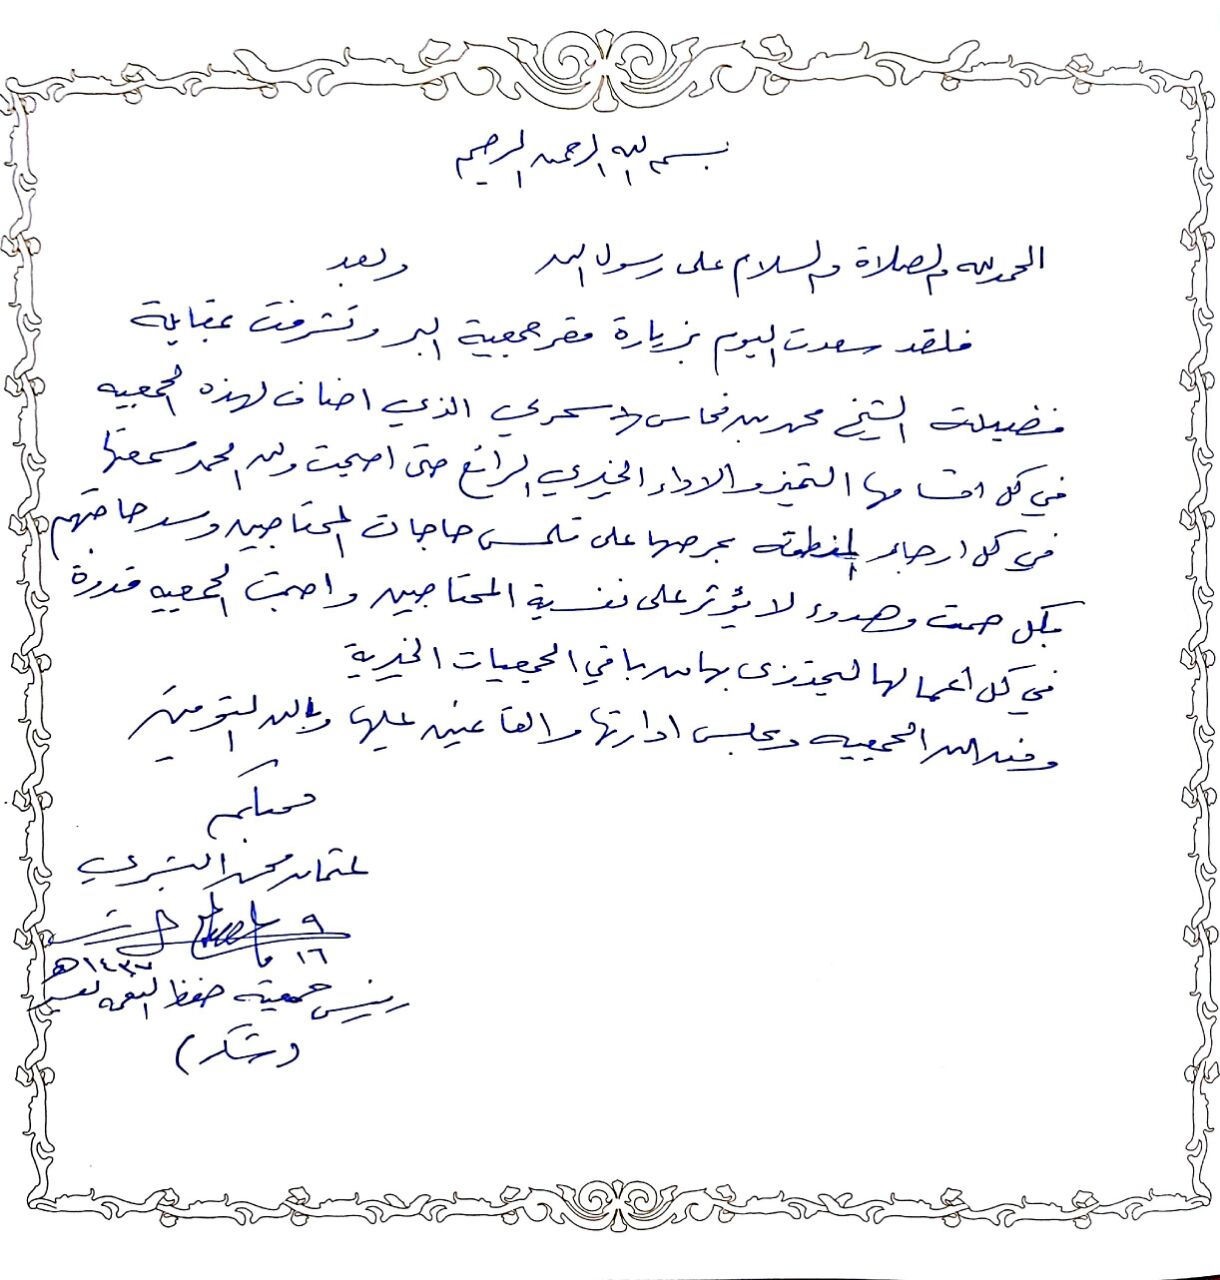 بسم الله الرحمن الرحيم
الحمدلله والصلاة والسلام على رسول الله وبعد
فلقد سعدت اليوم بزيارة مقر جمعية البر وتشرفت بمقابلة
فضيلة الشيخ محمد بن فحاس الاسمري الذي اضاف لهذه الجمعيه
في كل اقسامها التميز والاداء الخيري الرائع حتى اصبحت ولله الحمد سمعتها
في كل ارجاء المنطقه بحرصها على تلمس حاجات المحتاجين وسد حاجاتهم
بكل صمت وهدوء لا يؤثر على نفسية المحتاجين واصبحت الجمعيه قدوة
في كل اعمالها ليحتذى بها من باقي الجمعيات الخيرية
وفق الله الجمعيه ومجلس ادارتها والقائمين عليها وبالله التوفيق
محبكم
عثمان محمد البشري
٩
١٦ ١٤٣٧هـ
رئيس جمعية حفظ النعمه
(وشكر)